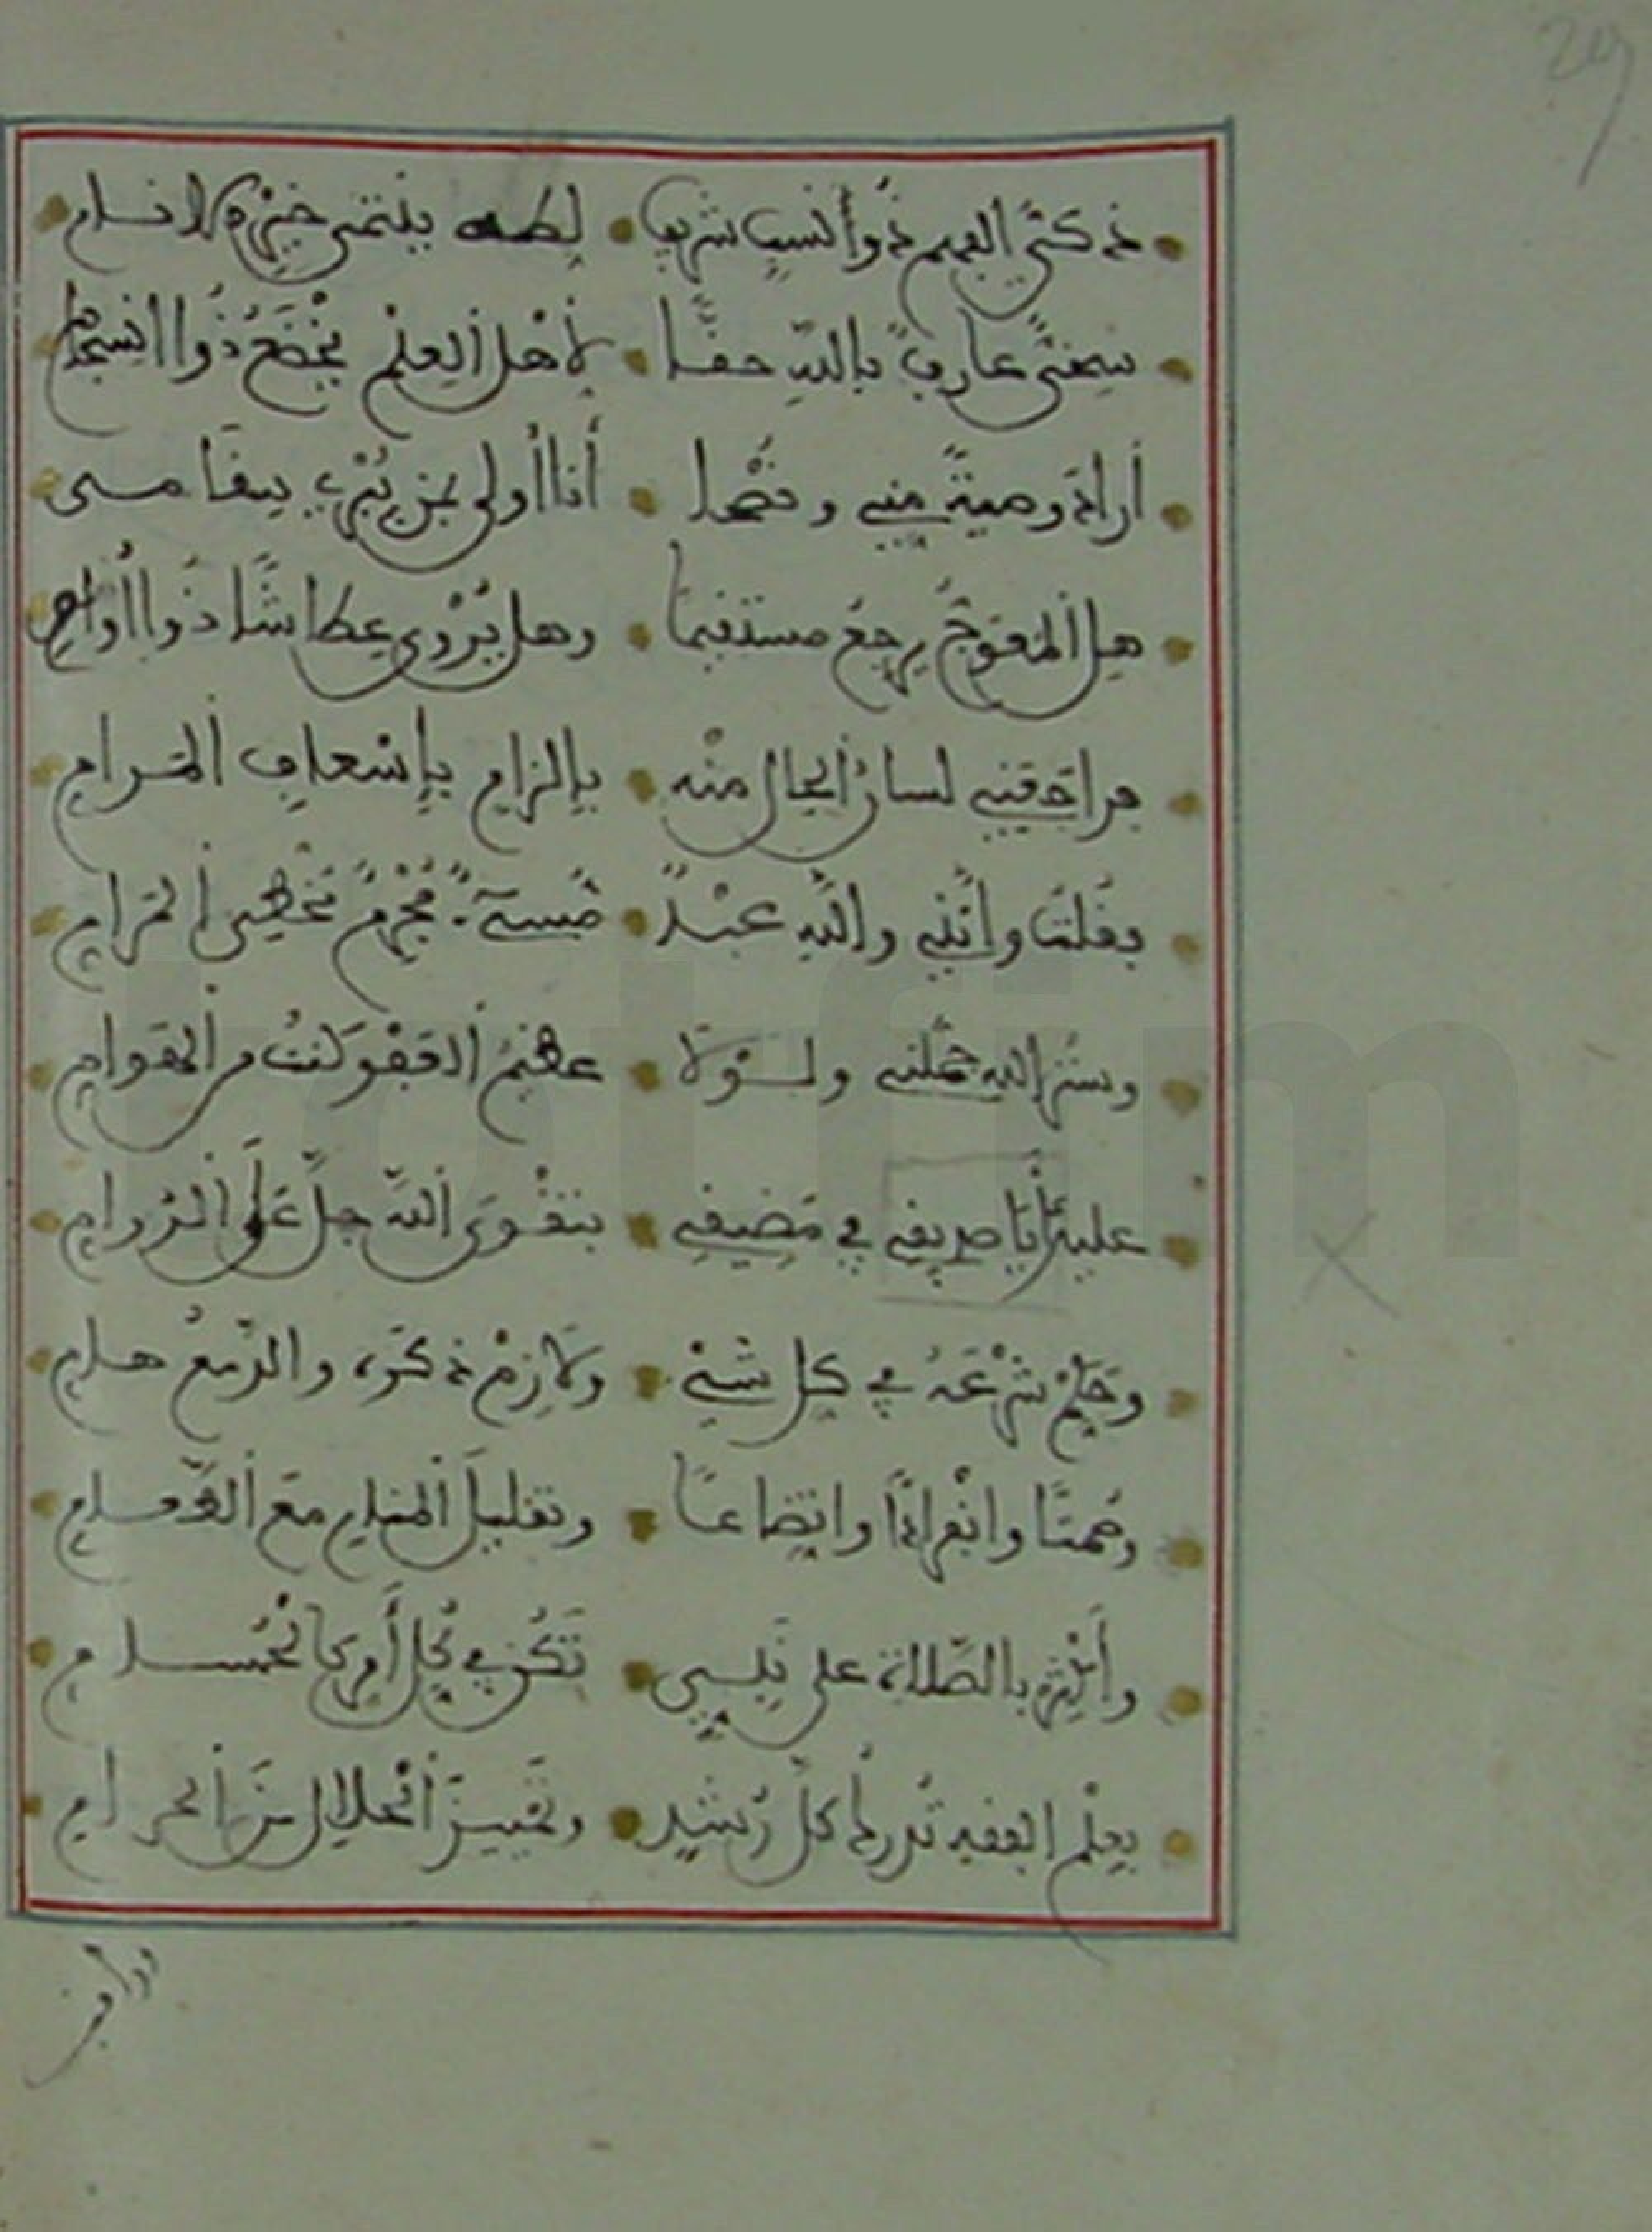 29
ذكيّ الفهم ذو النسب شريف لطه ينتمى خير الانام
سخيّ عارف بالله حقا لأهل العلم يخضع ذوا انسجام
أراد وصية مني ونصحا أنا أولى بمن يبري سقامى
هل المعوج يرجع مستقيما وهل يروي عطاشا ذوا أوام
فراجعني لسان الحال منه بإلزام بإسعاف المرام
فقلت وإنني والله عبد مسيء مجرم مخطي المرام
وستر الله جملني ولولا عظيم العفو كنت من العوام
عليك أيا صديقي في مضيفي بتقوى الله جل على الدوام
وحكم شرعه في كل شيء ولازم ذكره والدمع هام
وصمتا وانفرادا واتضاعا وتقليل المنام مع الطعام
وأكثر بالصلاة على نبيي تكن في كل أمر كالحسام
بعلم الفقه تدرك كل رشد وتمييز الحلال من الحرام